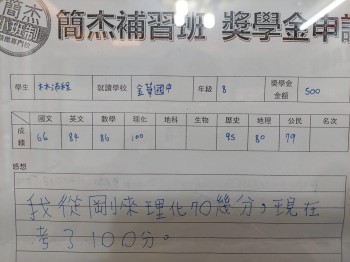 簡杰補習班 獎學金申請
學生 林 就讀學校 金華國中 年級 8 獎學金金額 500
國文 英文 數學 理化 地科 生物 歷史 地理 公民 名次
成績 66 84 86 100 95 80 79
感想
我從剛來理化70幾分,現在
考了100分。